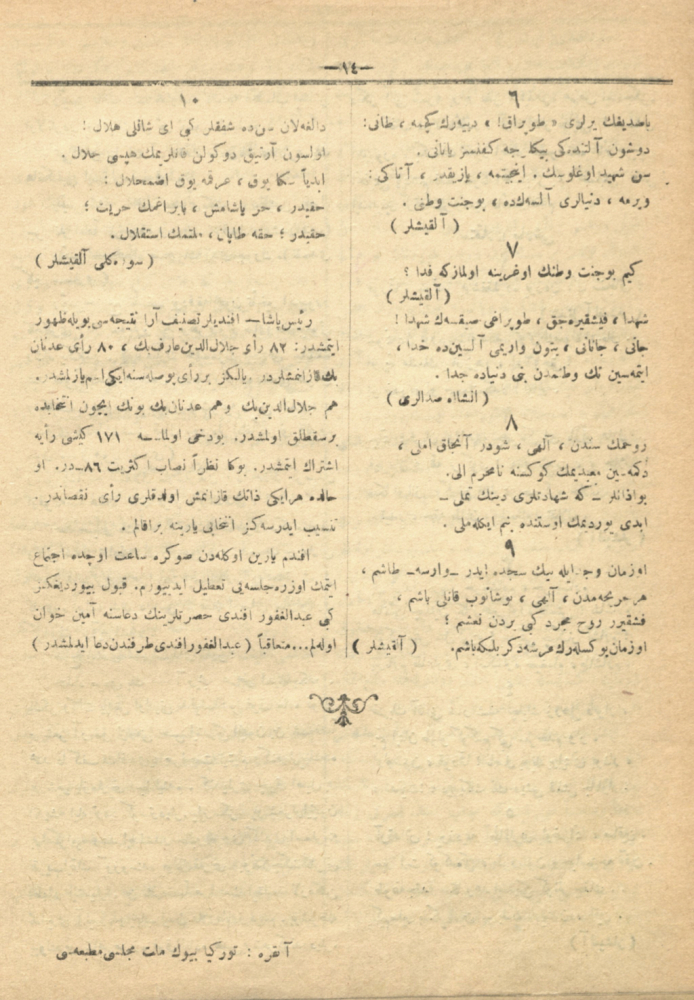 —١٤—
٦
باصديغك يرلرى « طوپراق! » دييه‌رك كچمه ، طانى:
دوشون آلتنده‌كى بيكلرجه كفنسز ياتانى .
سن شهيد اوغلوسك ، اينجيتمه ، يازيقدر ، آتاكى :
ويرمه ، دنيالرى آلسه‌كده ، بوجنت وطنى .
( آلقيشلر )
٧
كيم بوجنت وطنك اوغرينه اولمازكه فدا ؟
( آلقيشلر )
شهدا ، فيشقيره‌جق ، طوپراغى صيقسه‌ك شهدا !
جانى ، جانانى ، بتون واريمى آلسين‌ده خدا ،
ايتمه‌سين تك وطنمدن بنى دنياده جدا .
( انشااه صدالرى )
٨
روحمك سندن ، آلهى ، شودر آنجاق املى ،
دكمه‌سين معبديمك كوكسنه نامحرم الى.
بواذانلر ــ كه شهادتلرى دينك تملى ــ
ابدى يوردمك اوستنده بنم ايكله‌ملى .
٩
اوزمان وجدايله بيك سجده ايدر ــ وارسه‌ــ طاشم ،
هرجريحه‌مدن ، آلهى ، بوشانوب قانلى ياشم ،
فيشقيرر روح مجرد كبى يردن نعشم ؛
اوزمان يوكسله‌رك عرشه‌دكر بلكه‌باشم. ( آلقيشلر )
١٠
دالغه‌لان سن‌ده شفقلر كبى اى شانلى هلال !
اولسون آرتيق دوكولن قانلريمك هپسى حلال .
ابدياً سكا يوق ، عرقمه يوق اضمحلال :
حقيدر ، حر ياشامش ، بايراغمك حريت ؛
حقيدر ؛ حقه طاپان ، ملتمك استقلال .
( سوره‌كلى آلقيشلر )
رئيس پاشا — افنديلر تصنيف آرا نتيجه‌سى بويله‌ظهور
ايتمشدر: ٨٢ رأى جلال‌الدين عارف‌بك ، ٨٠ رأى عدنان
بك قازانمشلردر. يالكز بررأى پوصله‌سنه‌ايكى‌اسم‌يازلمشدر.
هم جلال‌الدين‌بك وهم عدنان‌بك بونك ايچون انتخابده
برمطلق اولمشدر. بودخى اولماسه ١٧١ كيشى رأيه
اشتراك ايتمشدر. بوكا نظراً نصاب اكثريت ٨٦ـدر. او
حالده هرايكى ذاتك قازانمش اولدقلرى رأى نقصاندر .
تنسيب ايدرسه‌كز انتخابى يارينه براقالم .
افندم يارين اوكله‌دن صوكره ساعت اوچده اجتماع
ايتمك اوزره‌جلسه‌يى تعطيل ايدييورم. قبول بيورديغكز
كبى عبدالغفور افندى حضرتلرينك دعاسنه آمين خوان
اوله‌لم...متعاقباً ( عبدالغفور افندى طرفندن‌دعا ايدلمشدر )
آنقره : توركيا بيوك ملت مجلسى مطبعه‌سى